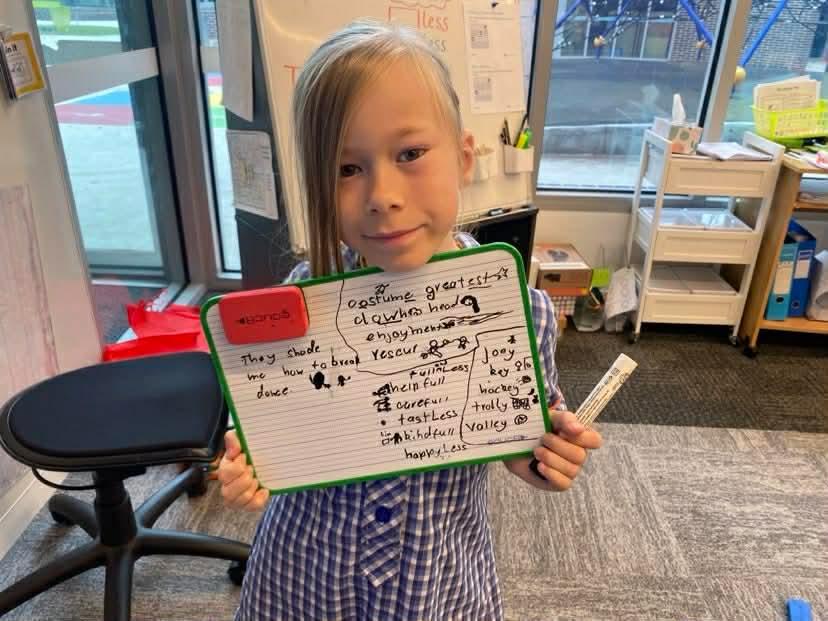 less
less
costume greatest
head
enjoyment
rescur
They shode
me how to break
dance.
full Less
helpfull
carefull
tastLess
kindfull
happyLess
joey
key
hockey
trolly
valley